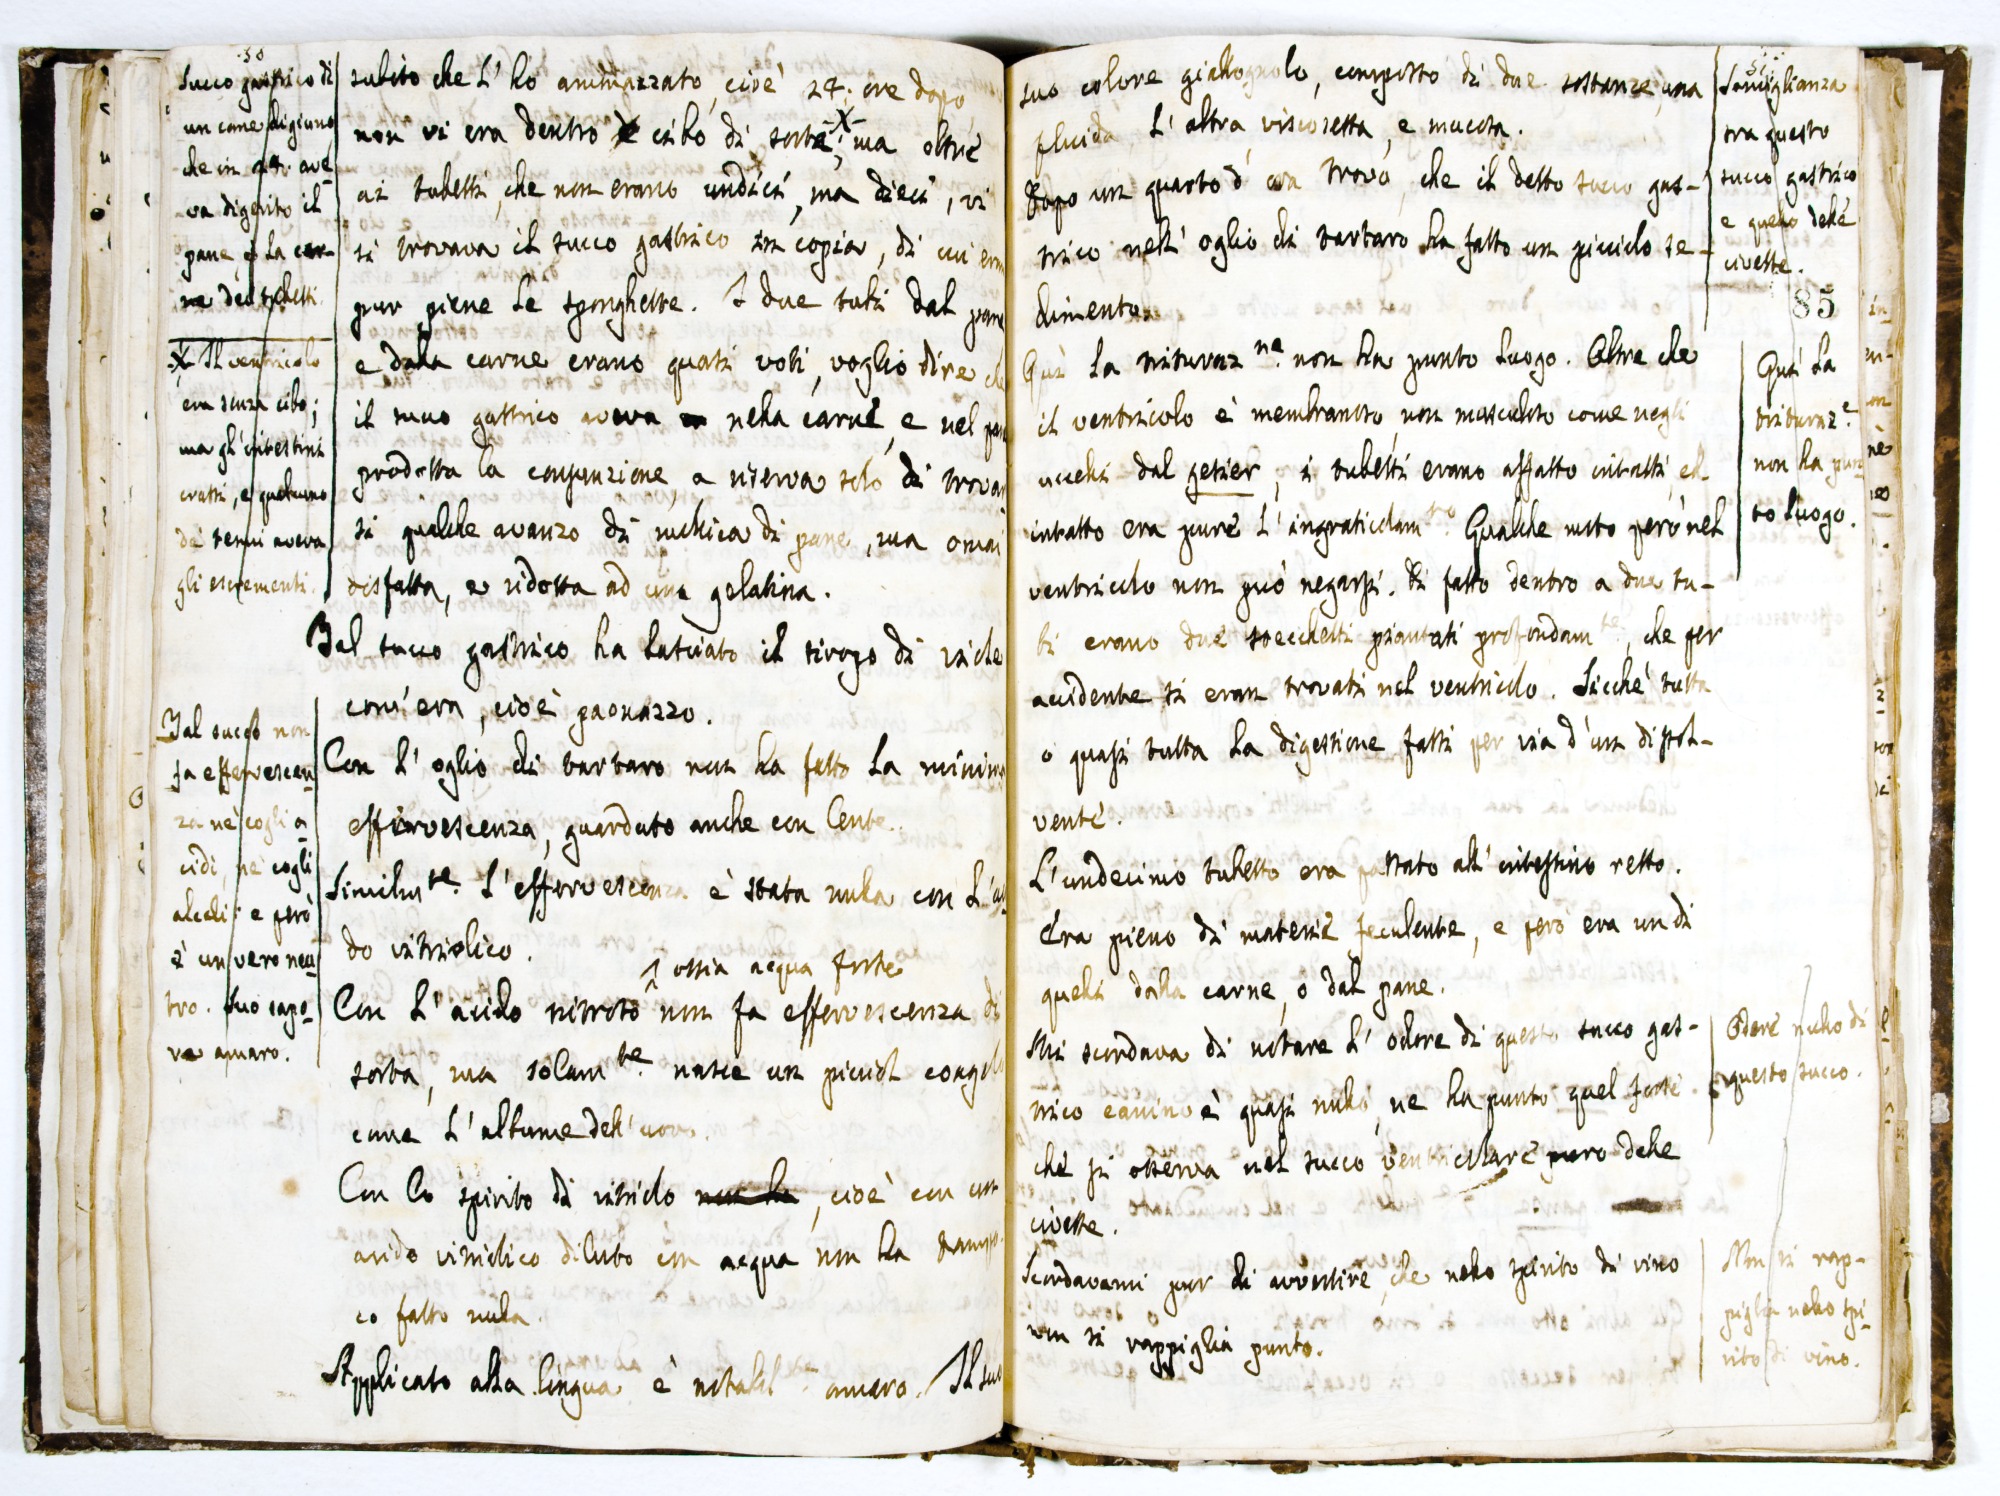 58
Succo gastrico di
un cane digiuno
che in 24. ave-
va digerito il
pane, e la car-
ne dei tubetti.
X Il ventricolo
era senza cibo;
ma gl'intestini
crassi, e qualcuno
de' tenui aveva
gli escrementi.
Tal succo non
fa effervescen-
za nè cogli a-
cidi, nè cogli
alcali: e però
è un vero neu-
tro. Suo sapo-
re amaro.
subito che l'ho ammazzato, cioè 24. ore dopo
non vi era dentro cibo di sorte X; ma oltre
ai tubetti, che non erano undici, ma dieci, vi
si trovava il succo gastrico in copia, di cui eran
pur piene le sponghette. I due tubi dal pane
e dalla carne erano quasi voti, voglio dire che
il succo gastrico aveva nella carne, e nel pane
prodotta la consunzione, a riserva solo di trovar-
si qualche avanzo di mollica di pane, ma omai
disfatta, e ridotta ad una gelatina.
Tal succo gastrico ha lasciato il siropo di viole
com'era, cioè paonazzo.
Con l'oglio di tartaro non ha fatto la minima
effervescenza, guardato anche con lente.
Similmte. l'effervescenza è stata nulla con l'aci-
do vitriolico.
^ ossia acqua forte
Con l'acido nitroso non fa effervescenza di
sorta, ma solamte. nasce un picciol coagolo
come l'albume dell'uovo.
Con lo spirito di vitriolo non ha, cioè con un
acido vitriolico diluto con acqua non ha tampo-
co fatto nulla.
Applicato alla lingua è notabilte. amaro. Il suo
suo colore giallognolo, composto di due sostanze, una
fluida, l'altra viscosetta, e muccosa.
Dopo un quarto d'ora trovo, che il detto succo gas-
trico nell'oglio di tartaro ha fatto un picciolo se-
dimento.
Quì la trituraz.ne non ha punto luogo. Oltre che
il ventricolo è membranoso, non musculoso come negli
uccelli dal gesier, i tubetti erano affatto intatti, ed
intatto era pure l'ingraticolamto. Qualche moto però nel
ventricolo non può negarsi. Di fatto dentro a due tu-
bi erano due stecchetti piantati profondamte, che per
accidente si eran trovati nel ventricolo. Sicchè tutta
o quasi tutta la digestione fassi per via d'un dissol-
vente.
L'undecimo tubetto era passato all'intestino retto.
Era pieno di materie feculente, e però era un di
quelli dalla carne, o dal pane.
Mi scordava di notare l'odore di questo succo gas-
trico canino è quasi nullo, ne ha punto quel forte
che si osserva nel succo ventricolare puro delle
civette.
Scordavami pur di avvertire, che nello spirito di vino
non si rappiglia punto.
Somiglianza
tra questo
succo gastrico
e quello delle
civette.
85
Quì la
trituraz.e
non ha pun-
to luogo.
Odore nullo di
questo succo.
Non si rap-
piglia nello spi-
rito di vino.